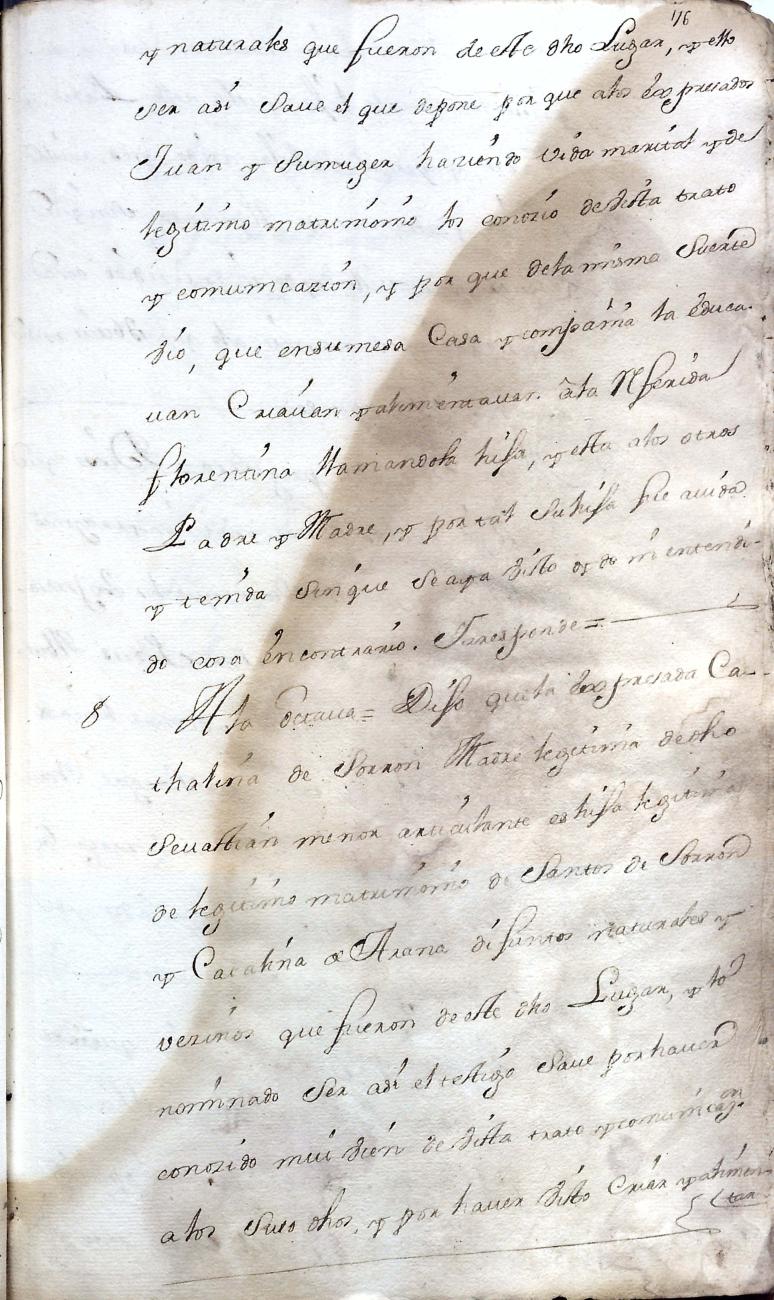 116
y naturales que fueron de este dho Lugar, y esto
ser asi save el que depone por que alos expresados
Juan y Sumuger haziendo vida marital y de
legitimo matrimonio los conozio de vista trato
y comunicazion, y por que dela misma Suerte
vió, que ensumesa Casa y compañia la educa-
van Criavan y alimentavan. ala Referida
florentina llamandola hija, y esta alos otros
Padre y Madre, y por tal Su hija fue avida
y tenida sinque Seaya visto oydo ni entendi-
do cosa encontrario. Yrresponde=
8 Ala octava = Dijo quela expresada Ca-
thalina de Sorron Madre legitima de dho
Sevastian menor articulante es hija legitima
de legitimo matrimonio de Santos de Sorron
y Catalina de Arana difuntos naturales y
vezinos que fueron de este dho Lugar, y lo
nominado Ser asi el testigo Save por haver
conozido mui bien de vista trato y comunicazon
alos Suso dhos, y por haver visto Criar y alimen
tar